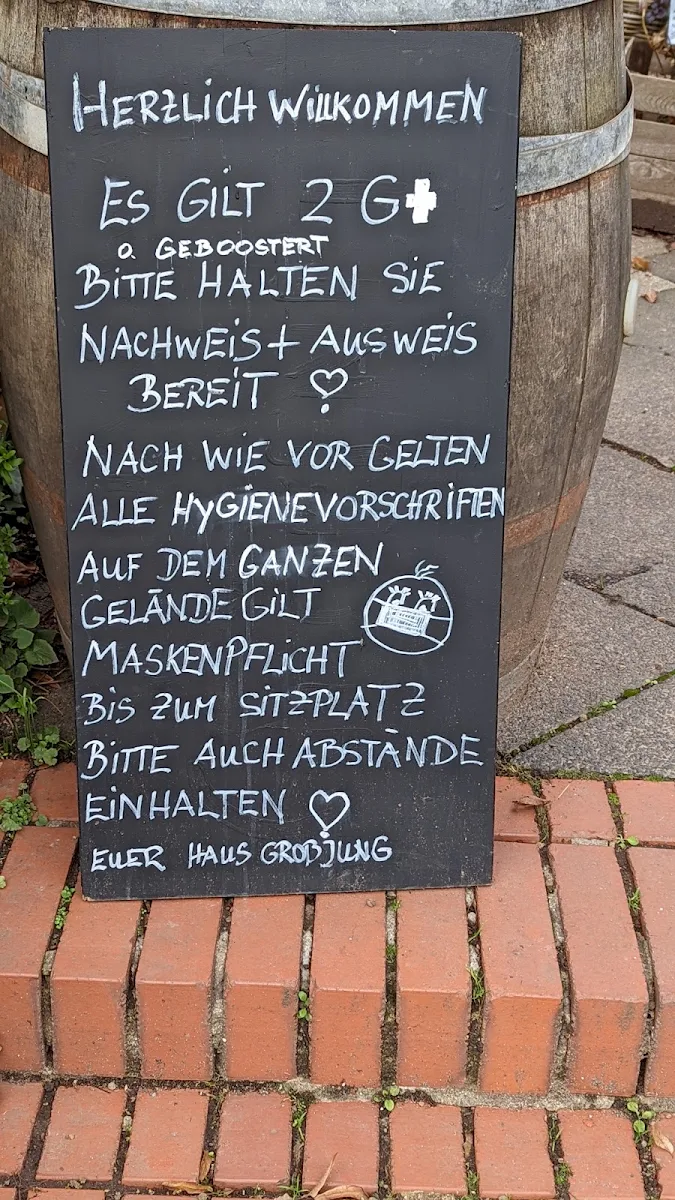 HERZLICH WILLKOMMEN
ES GILT 2 G+
O. GEBOOSTERT
BITTE HALTEN SIE
NACHWEIS + AUSWEIS
BEREIT ♡
NACH WIE VOR GELTEN
ALLE HYGIENEVORSCHRIFTEN
AUF DEM GANZEN
GELÄNDE GILT
MASKENPFLICHT
BIS ZUM SITZPLATZ
BITTE AUCH ABSTÄNDE
EINHALTEN ♡
EUER HAUS GROBJUNG